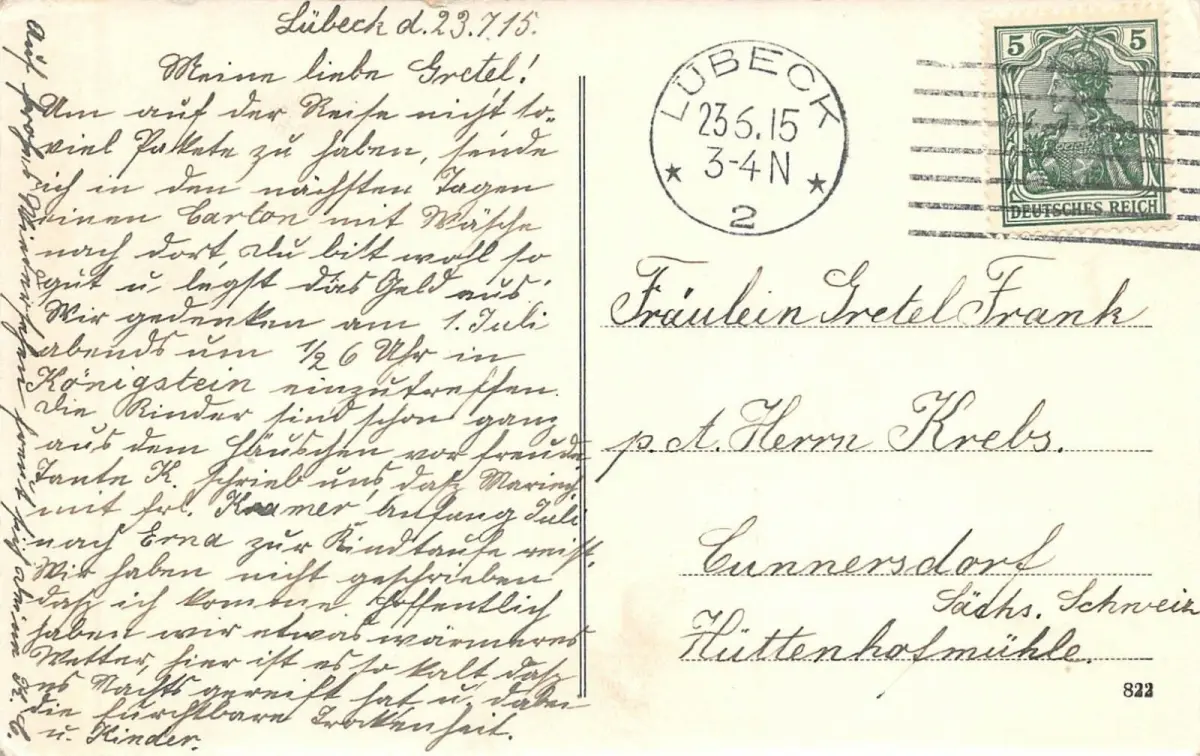 Lübeck d. 23.7.15.
Meine liebe Gretel!
Um auf der Reise nicht so-
viel Pakete zu haben, sende
ich in den nächsten Tagen
einen Carton mit Wäsche
nach dort, Du bist wohl so
gut u. legst das Geld aus.
Wir gedenken am 1. Juli
abends um 1/2 6 Uhr in
Königstein einzutreffen.
Die Kinder sind schon ganz
aus dem Häuschen vor Freude
Tante K. schrieb uns, dasz Mariech.
mit Frl. Kramer Anfang Juli
nach Erna zur Kindtaufe reist.
Wir haben nicht geschrieben
dasz ich komme. Hoffentlich
haben wir etwas wärmeres
Wetter, hier ist es so kalt, dasz
es Nachts gereift hat u. dabei
die furchtbare Trockenheit.
u. Kinder.
Auf frohes Wiedersehen freut sich
LÜBECK
23.6.15
3-4 N
2
5 5
DEUTSCHES REICH
Fräulein Gretel Frank
p. A. Herrn Krebs.
Cunnersdorf
Sächs. Schweiz
Hüttenhofmühle.
822